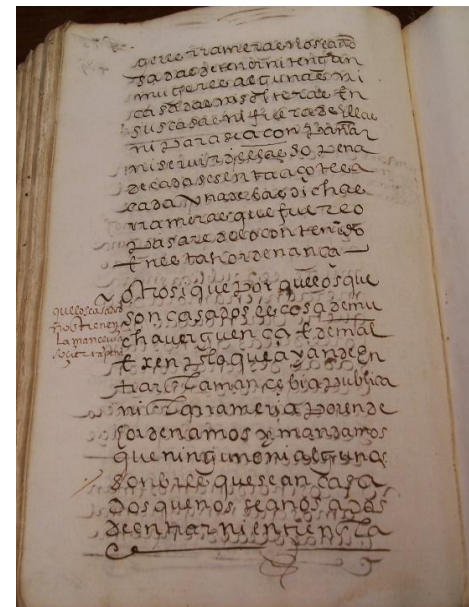 geres rrameras no sean o
sadas de tener ni tengan
mugeres algunas ni
casadas ni solteras en
sus casas ni fuera dellas
ni para se aconpañar
ni servir dellas so pena
de cada sesenta açotes a
cada una de las dichas
rrameras que fuere o
pasare lo contenido
en esta hordenança
Otrosi que por que los que
son casados es cosa de mu
cha verguença e de mal
exenplo que ayan de en
trar la mancebia publica
ni la rrameria por ende
hordenamos y mandamos
que ninguno ni algunos
honbres que sean casa
dos que no sean osados
de entrar ni entren en la
que los casados
no entren en
la mancebia